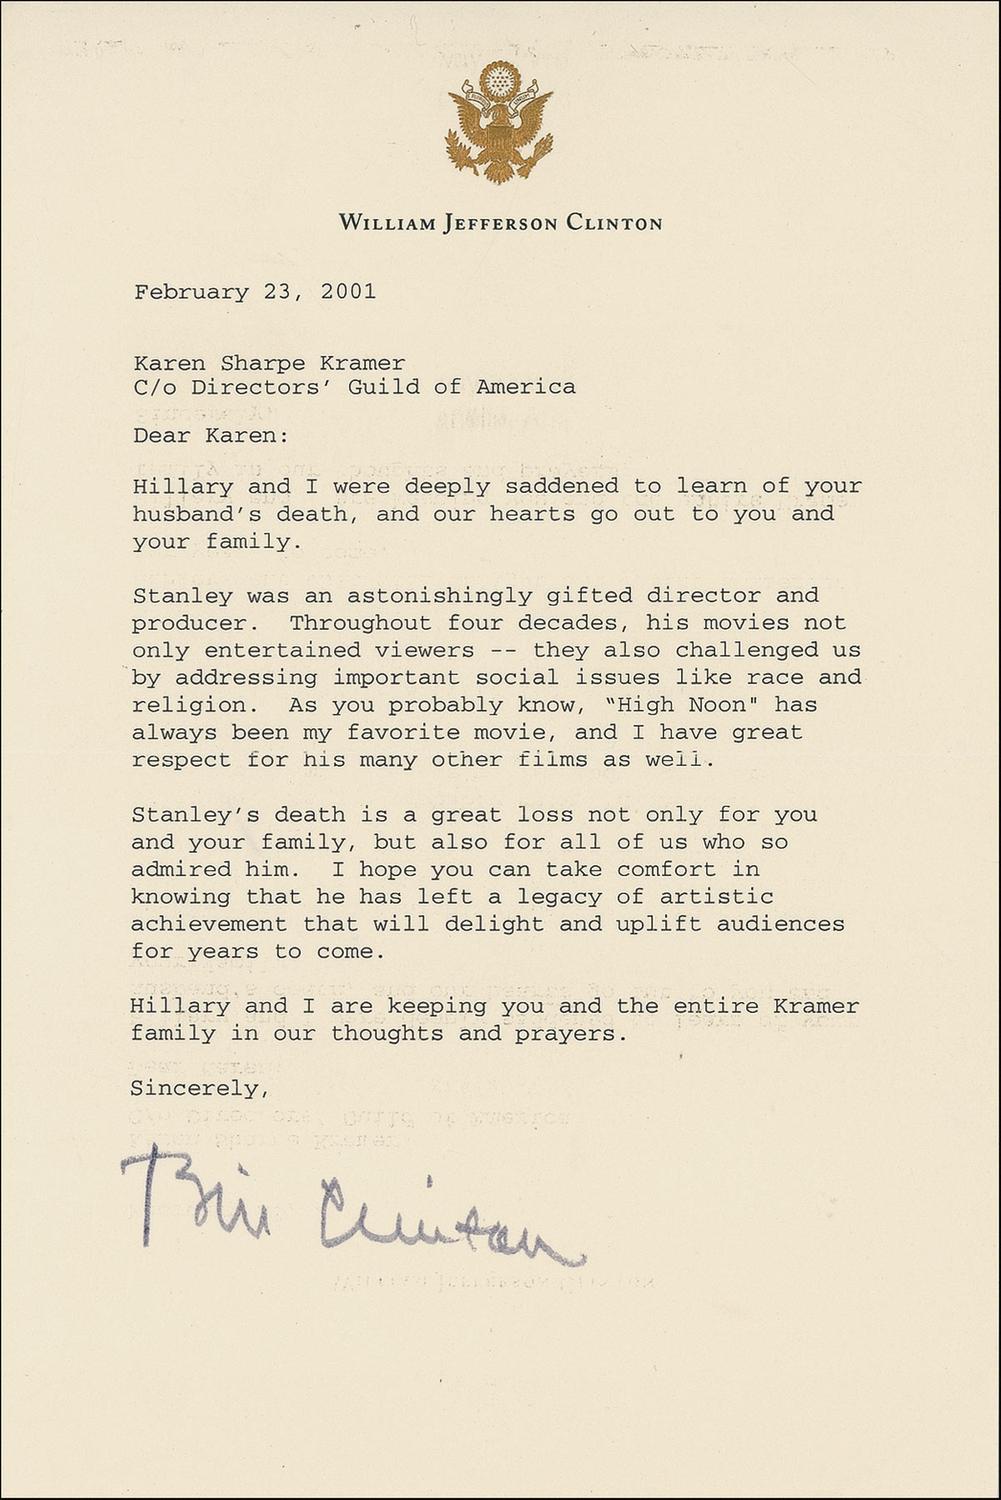 WILLIAM JEFFERSON CLINTON
February 23, 2001
Karen Sharpe Kramer
C/o Directors' Guild of America
Dear Karen:
Hillary and I were deeply saddened to learn of your
husband's death, and our hearts go out to you and
your family.
Stanley was an astonishingly gifted director and
producer.  Throughout four decades, his movies not
only entertained viewers -- they also challenged us
by addressing important social issues like race and
religion.  As you probably know, “High Noon" has
always been my favorite movie, and I have great
respect for his many other films as well.
Stanley's death is a great loss not only for you
and your family, but also for all of us who so
admired him.  I hope you can take comfort in
knowing that he has left a legacy of artistic
achievement that will delight and uplift audiences
for years to come.
Hillary and I are keeping you and the entire Kramer
family in our thoughts and prayers.
Sincerely,
Bill Clinton